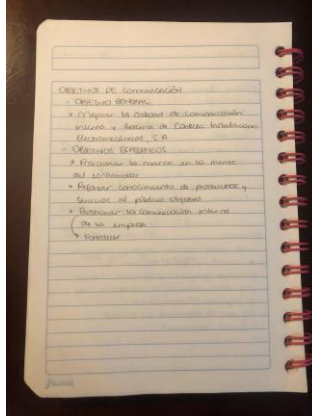 OBJETIVOS DE COMUNICACIÓN
- OBJETIVO GENERAL
* Mejorar la calidad de comunicación
interna y externa de Instalaciones
Electromecánicas, S.A
- OBJETIVOS ESPECÍFICOS
* Posicionar la marca en la mente
del consumidor
* Reforzar conocimiento de productos y
servicios al público objetivo
* la comunicación interna
de la empresa
Fortalecer